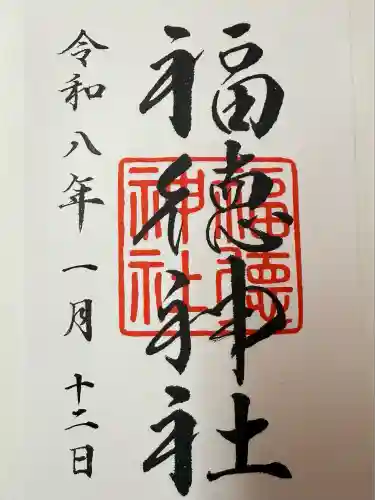 福徳神社
福徳
神社
令和八年一月十二日